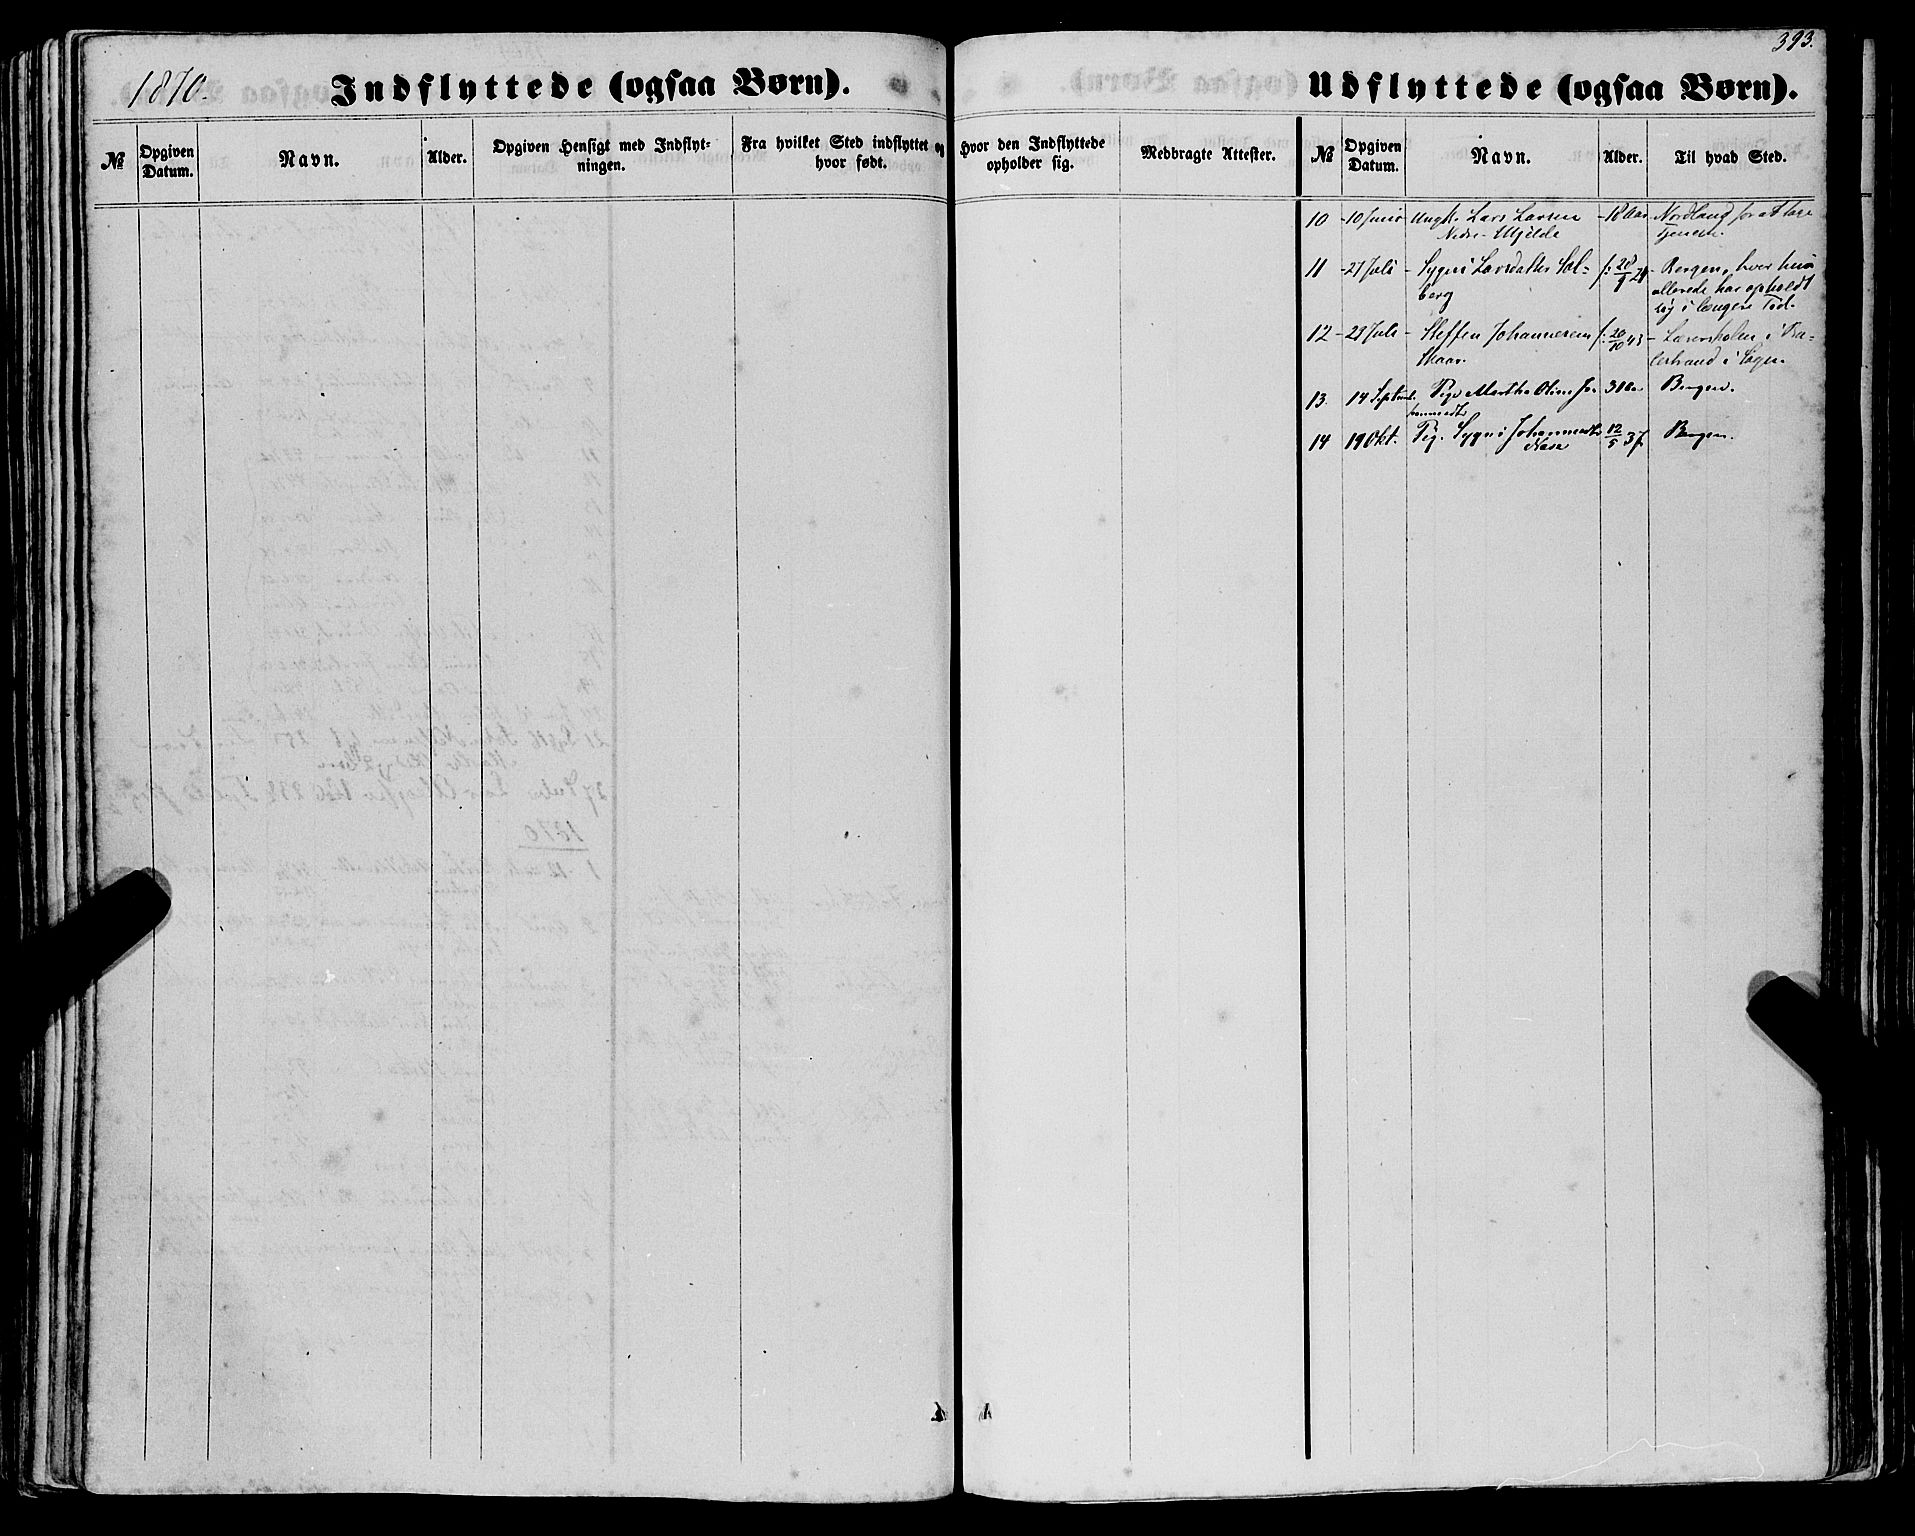 393.
1870.
Indflyttede (ogsaa Børn).
Udflyttede (ogsaa Børn).
№
Opgiven Datum.
Navn.
Alder.
Opgiven Hensigt med Indflyt-
ningen.
Fra hvilket Sted indflyttet og
hvor født.
Hvor den Indflyttede
opholder sig.
Medbragte Attester.
№
Opgiven Datum.
Navn.
Alder.
Til hvad Sted.
10 - 10 Juni Ungk. Lars Larsen - 18 Aar Nordland for at tage
Nedre - Mjelde Tjeneste.
11 - 27 Juli - Sygni Larsdatter Sol- f: 28/9 29 - Bergen, hvor hun
berg allerede har opholdt
sig i længere Tid.
12 - 29 Juli - Steffen Johannesen f: 20/10 43 - i Ba-
Skaar. lestrand i Sogn.
13. 14 Septemb. Pige Martha Oline Jo- 31 Aar Bergen.
hannesdtr
14 19 Okt. Pig. Sygni Johannesdtr 12/5 37 Bergen.